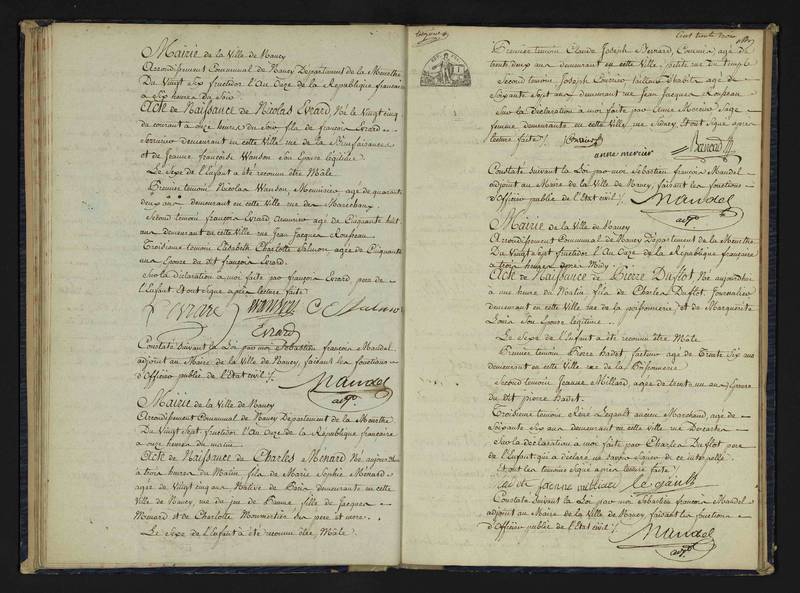 Mairie de la Ville de Nancy
Arrondissement Communal de Nancy Département de la Meurthe
Du Vingt Six fructidor L'An Onze de la République française
à Six heures du Soir
Acte de Naissance de Nicolas Evrard, Né le Vingt cinq
du courant à onze heures du Soir fils de françois Evrard
Serrurier demeurant en cette Ville rue de la Bienfaisance
et de Jeanne françoise Wanson son Epouse légitime.
Le Sexe de l'Enfant a été reconnu être Male.
Premier temoin Nicolas Wanson, Menuisier, agé de quarante
deux ans demeurant en cette Ville rue des Marechaux
Second temoin françois Evrard agé de Cinquante huit
ans demeurant en cette Ville rue Jean Jacques Rousseau
Troisieme temoin Elisabeth Charlotte Salmon agée de Cinquante
ans Epouse du dt françois Evrard.
Sur la déclaration à moi faite par françois Evrard, pere de
l'Enfant Et ont signé après lecture faite
Evrard
Constaté Suivant la Loi par moi Sébastien françois Mandel
adjoint au Maire de la Ville de Nancy, faisant les fonctions
d'Officier public de l'Etat civil
Mandel
adjt.
Mairie de la Ville de Nancy
Arrondissement Communal de Nancy Département de la Meurthe
Du Vingt Sept fructidor L'An Onze de la République française
à onze heures du matin
Acte de Naissance de Charles Ménard Né aujourd'hui
à trois heures du Matin fils de Marie Sophie Ménard
agée de Vingt cinq ans Native de Paris demeurante en cette
Ville de Nancy, rue du jeu de Paume fille de Jacques
Menard et de Charlotte ses pere et mere.
Le Sexe de l'Enfant a été reconnu être Male.
Cent trente
Premier temoin Claude Joseph Bernard, Commis agé de
trente deux ans demeurant en cette Ville petite rue du temple
Second temoin Joseph tailleur d'habits agé de
Soixante Sept ans demeurant rue Jean Jacques Rousseau
Sur la Déclaration à moi faite par Anne Mercier Sage
femme demeurante en cette Ville rue Sidney Et ont Signé après
lecture faite
anne mercier
Bernard
Constaté suivant la Loi par moi Sébastien françois Mandel
adjoint au Maire de la Ville de Nancy, faisant les fonctions
d'Officier public de l'Etat civil
Mandel
adjt.
Mairie de la Ville de Nancy
Arrondissement Communal de Nancy Département de la Meurthe
Du Vingt Sept fructidor L'An Onze de la République française
à trois heures après Midy
Acte de Naissance de Pierre Duflot Né aujourd'hui
à une heure du Matin fils de Charles Duflot, Journalier
demeurant en cette Ville rue de la poissonnerie et de Marguerite
Louis Son Epouse légitime.
Le Sexe de l'Enfant a été reconnu être Male
Premier temoin Pierre hadet facteur agé de Trente Six ans
demeurant en cette Ville rue de la Poissonnerie
Second temoin Jeanne Millard agée de trente un ans Epouse
du dit pierre hadet.
Troisieme temoin René Legault ancien Marchand, agé de
Soixante Six ans demeurant en cette Ville rue Descartes
Sur la déclaration à moi faite par Charles Duflot pere
de l'Enfant qui a déclaré ne savoir signer de ce interpellé
Et ont les temoins Signé après lecture faite
le gault
Constaté Suivant la Loi par moi Sébastien françois Mandel
adjoint au Maire de la Ville de Nancy faisant les fonctions
d'Officier public de l'Etat civil
Mandel
adjt.